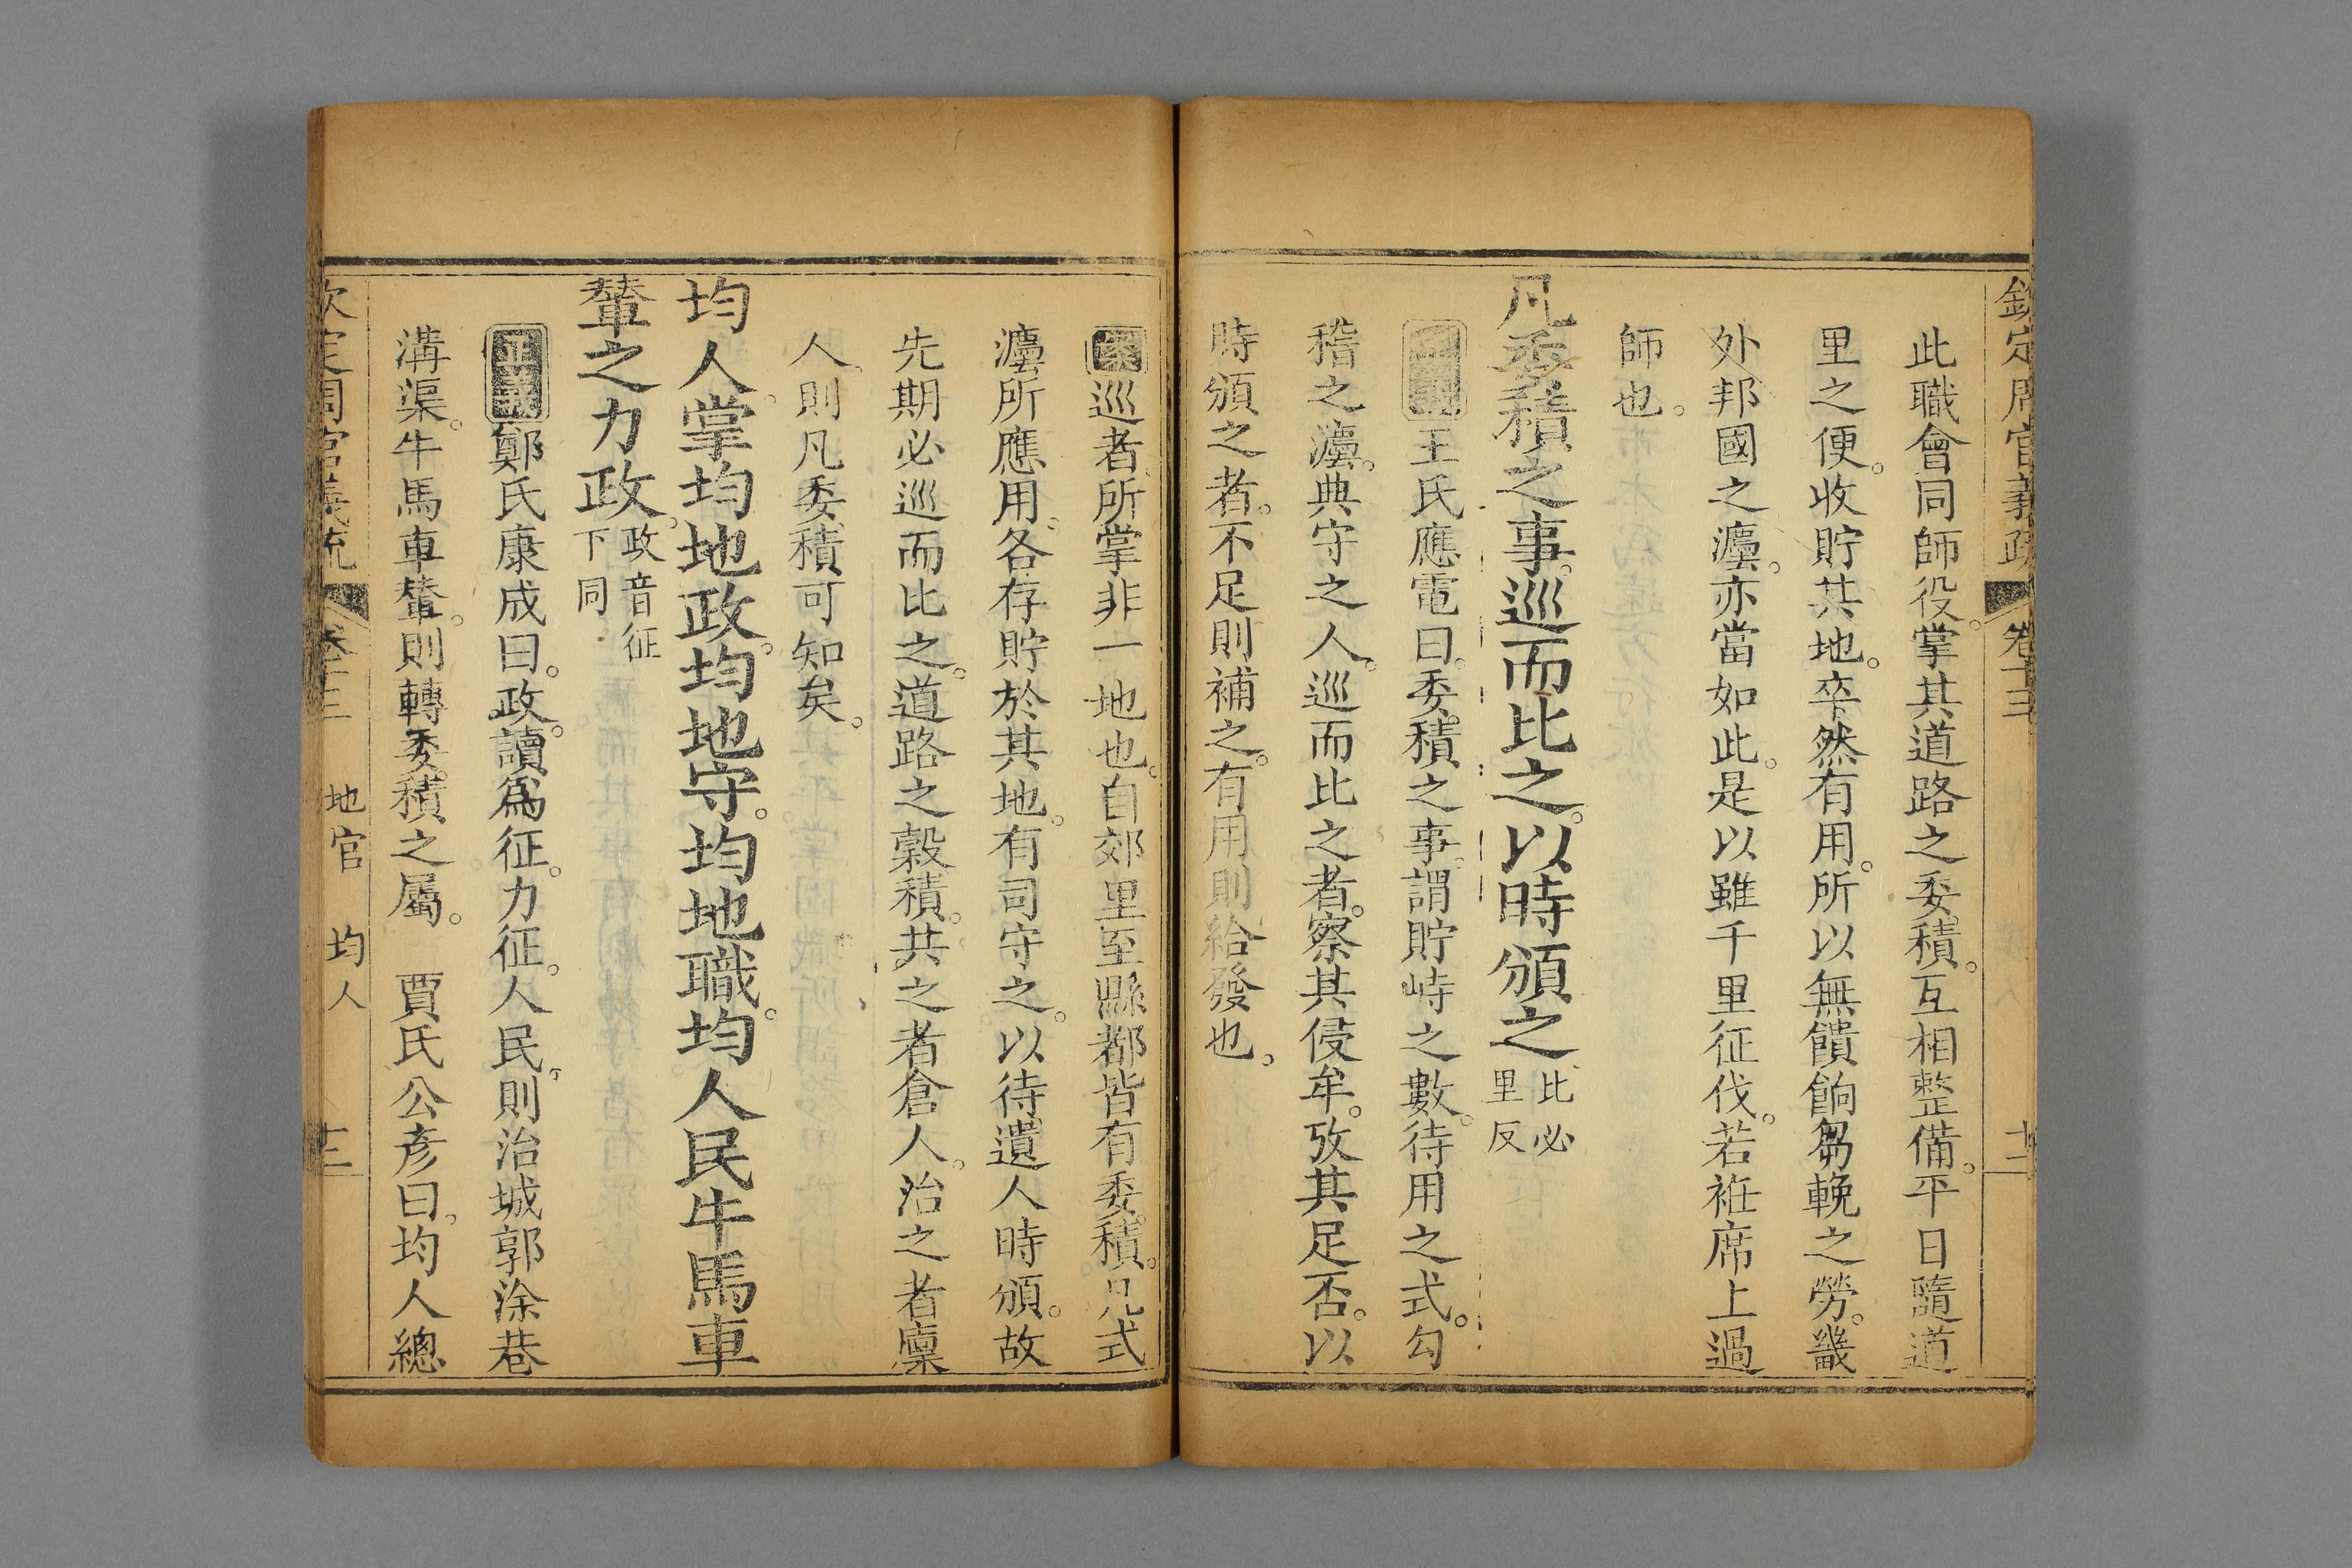 欽定周官義疏 卷十三 十二
此職會同師役。掌其道路之委積。互相整備。平日隨道
里之便。收貯其地。卒然有用。所以無饋餉芻輓之勞。畿
外邦國之灋。亦當如此。是以雖千里征伐。若袵席上過
師也。
凡委積之事。巡而比之。以時頒之 比必里反
王氏應電曰。委積之事。謂貯峙之數。待用之式。勾
稽之灋。典守之人。巡而比之者。察其侵牟。攷其足否。以
時頒之者。不足則補之。有用則給發也。
案巡者。所掌非一地也。自郊里至縣都。皆有委積。凡式
灋所應用。各存貯於其地。有司守之。以待遺人時頒。故
先期必巡而比之。道路之穀積。共之者倉人。治之者廩
人。則凡委積可知矣。
均人。掌均地政。均地守。均地職。均人民牛馬車
輦之力政。政音征下同
正義鄭氏康成曰。政。讀爲征。力征。人民。則治城郭涂巷
溝渠。牛馬車輦。則轉委積之屬。 賈氏公彥曰。均人總
欽定周官義疏 卷十三 地官 均人 十三